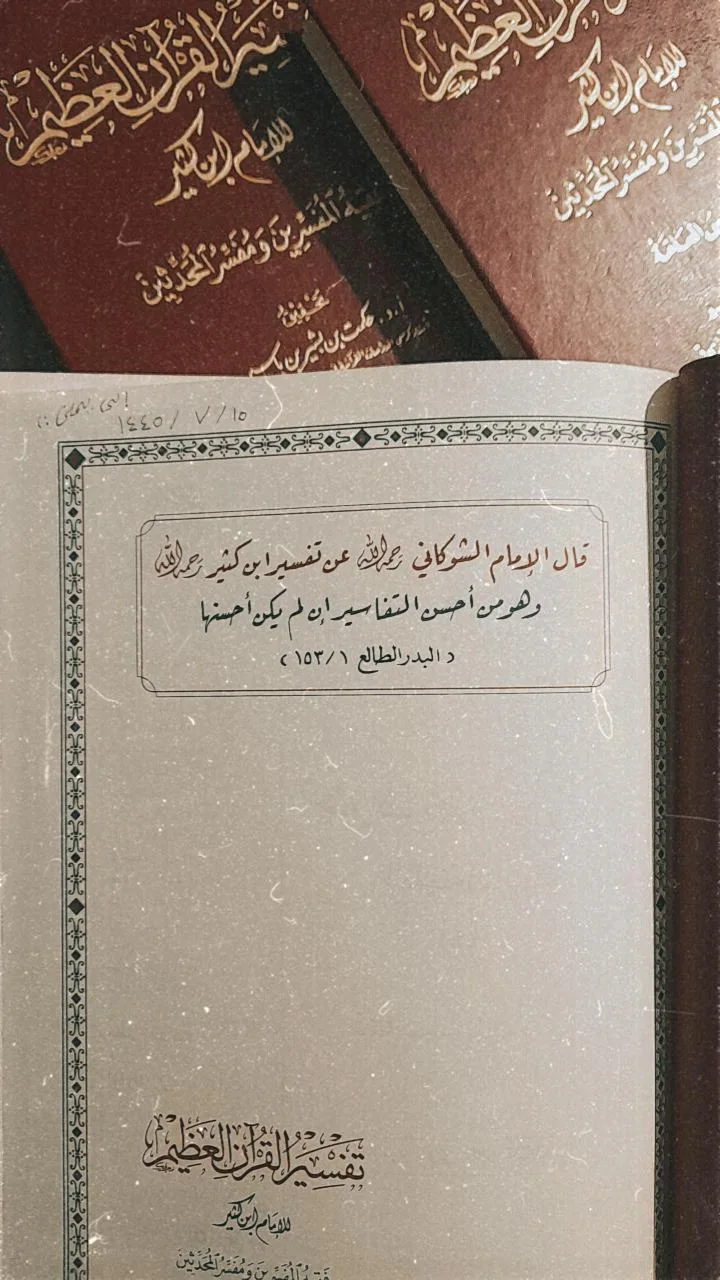 تفسير القرآن العظيم
للإمام ابن كثير
فقيه المفسرين ومفسر المحدثين
تحقيق
أ.د. حكمت بن بشير بن ياسين
القرآن العظيم
للإمام ابن كثير
المفسرين ومفسر المحدثين
١٥ / ٨ / ١٤٤٥
قال الإمام الشوكاني رحمه الله عن تفسير ابن كثير رحمه الله
وهو من أحسن التفاسير إن لم يكن أحسنها
( البدر الطالع ١ / ١٥٣ )
تفسير القرآن العظيم
للإمام ابن كثير
فقيه المفسرين ومفسر المحدثين